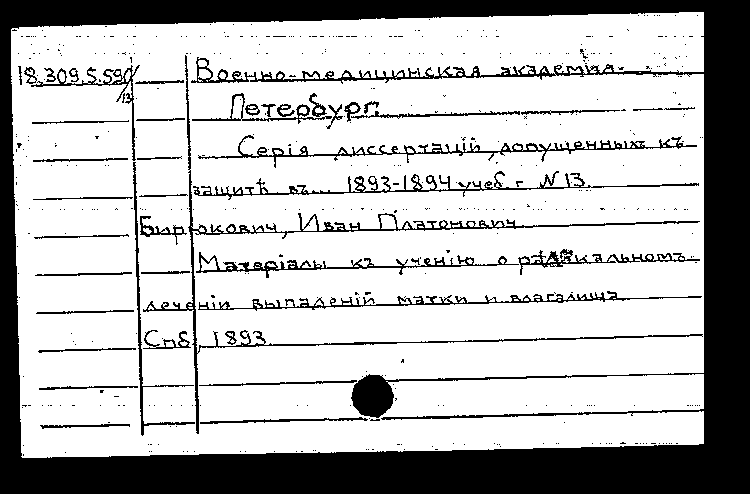 18.309.5.590/13 Военно-медицинская академия.
Петербург.
Серія диссертацій, допущенныхъ къ
защитѣ въ... 1893-1894 учеб. г. N 13.
Бирюкович, Иван Платонович
Матеріалы къ ученію о радикальномъ
леченіи выпаденій матки и влагалища
Спб, 1893.